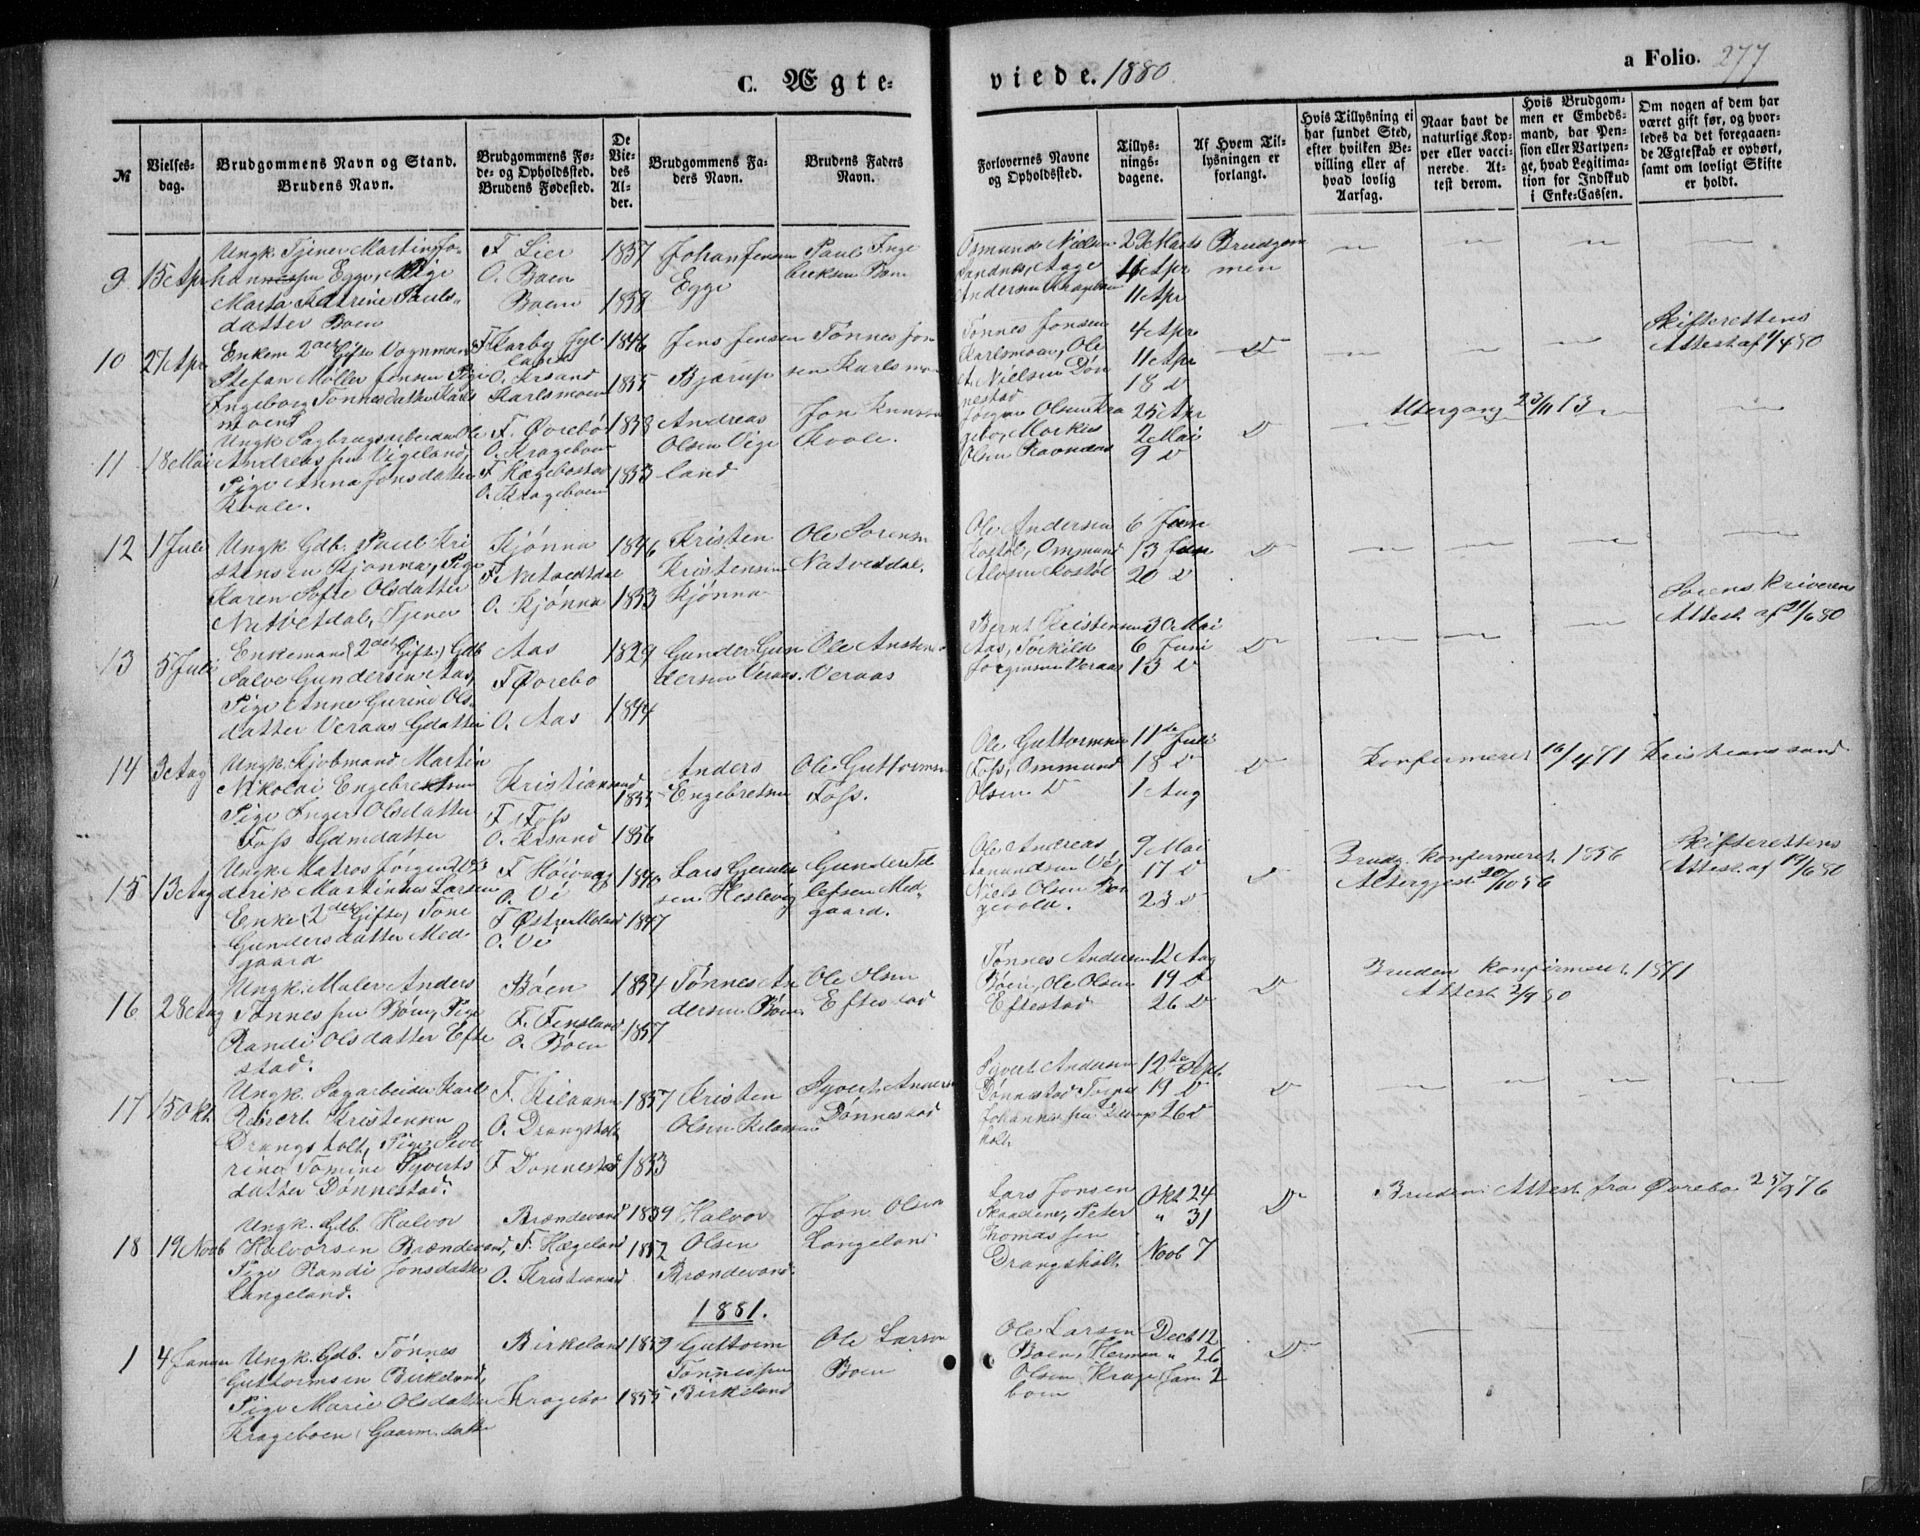 C. Ægte-
viede. 1880
a Folio. 277
№
Vielses-
dag.
Brudgommens Navn og Stand.
Brudens Navn.
Brudgommens Fø-
de- og Opholdssted.
Brudens Fødested.
De
Vie-
des
Al-
der.
Brudgommens Fa-
ders Navn.
Brudens Faders
Navn.
Forlovernes Navne
og Opholdssted.
Tillys-
nings-
dagene.
Af Hvem Til-
lysningen er
forlangt.
Hvis Tillysning ei
har fundet Sted,
efter hvilken Be-
villing eller af
hvad lovlig
Aarsag.
Naar havt de
naturlige Kop-
per eller vacci-
nerede. At-
test derom.
Hvis Brudgom-
men er Embeds-
mand, har Pen-
sion eller Vartpen-
ge, hvad Legitima-
tion for Indskud
i Enke-Cassen.
Om nogen af dem har
været gift før, og hvor-
ledes da det foregaaen-
de Ægteskab er ophørt,
samt om lovligt Skifte
er holdt.
9 15 Apr
Ungk Tjener Martin Jo-
Egge, Pige
Marta Katrine Pauls-
datter Boen
F Lier
O. Boen
Boen
1857
1858
Johan Jensen
Egge
Paul Inge
Boen
Osmund Nielsen
Aage
Andersen Krageboen
29 Marts
4 Apr
11 Apr
Brudgom
men
10 27 Apr
Enkem 2den Gift Vognmand
Stefan Møller Jensen Pige
Ingeborg Tønnesdatter Karls
moen
F. Karby Jyl-
land
O. Krsand
Karlsmoen
1846
1855
Jens Jensen
Bjærup
Tønnes Jon
sen Karlsmoen
Tønnes Jonsen
Karlsmoen, Ole
Nielsen Døn
nestad
4 Apr
11 Apr
18 D
D
Skifterettens
Attest af 1/4 80
11 18 Mai
Ungk Sagbrugsarbeider Ole
Andreassen Vigeland,
Pige Anna Jonsdatter
Kvale.
F. Øvrebø
O. Krageboen
F Hægebostad
O. Krageboen
1858
1853
Andreas
Olsen Vige
land
Jon
Kvale.
Jørgen Olsen Kra
gebo, Markus
Olsen Ravnaas
25 Apr
2 Mai
9 D
D
Altergang 23/11 13
12 1 Juli
Ungk Gdb. Paul Kri
stensen Kjønna, Pige
Karen Sofie Olsdatter
Natvetdal, Tjener
Kjønna
F. Natvedtdal
O. Kjønna
1846
1853
Kristen
Kristensen
Kjønna
Ole Sorensen
Natveddal.
Ole Andersen
Kostøl, Ommund
Alvsen Kostøl
6 Juni
13 Juni
20 D
D
13 5 Juli
Enkemand (2det Gifte) Gdb
Salve Gundersen Aas,
Pige Anne Gurine Ols-
datter Veraas Gdatter
Aas
F Øvrebo
O. Aas
1829
1844
Gunder Gun
dersen Veraas.
Ole Anstens
Veraas
Bernt Kristensen
Aas, Torkild
Jorginsen Veraas
30 Mai
6 Juni
13 D
D
Sorenskriverens
Attest af 21/6 80
14 3 Aug
Ungk. Kjøbmand Martin
Nikolai Engebretsen
Pige Inger Olsdatter
Foss Gdmdatter
Kristiansand
F Foss
O. Krsand
1855
1856
Anders
Engebretsen
Ole Guttormsen
Foss.
Ole Guttormsen
Foss, Ommund
Olsen D
11te Juli
18 D
1 Aug
D
Konfirmeret 16/4 71 Kristianssand
15 13 Aug
Ungk Matros Jørgen
Martinius Larsen
Enke (2det Gifte) Tone
Gundersdatter Med
gaard
F Høivaag
O. Vé
F Østre Moland
O. Vé
1840
1847
Lars
sen Heslevig
Gunder
lefsen Med-
gaard.
Ole Andreas
Amundsen Vé,
Niels Olsen Bor
gevold.
9 Mai
17 D
23 D
D
Brudg. Konfirmeret 1856
Altergjest 20/10 56
Skifterettens
Attest af 19/6 80
16 28 Aug
Ungk. Maler Anders
Tønnessen Bøen, Pige
Randi Olsdatter Efte
stad.
Bøen
F. Finsland
O. Bøen
1854
1857
Tønnes An
dersen Bøen
Ole Olsen
Eftestad
Tønnes Andersen
Bøen, Ole Olsen
Eftestad
12 Aug
19 D
26 D
D
Bruden Konfirmeret 1871
Attest 2/9 80
17 15 Okt
Ungk. Sagarbeider Karl
Robert Kristensen
Drangsholt, Pige Seve
rine Tomine Syverts
datter Dønnestad.
F. Kilaann
O. Drangsholt
F Donnestad
1857
1853
Kristen
Olsen Kilaann
Syvert Anders
Dønnestad
Syvert Andersen
Dønnestad
Johannessen Drangs
holt
12te Sept.
19 D
26 D
D
18 19 Novb
Ungk. Gdb. Halvor
Halvorsen Brændevand,
Pige Randi Jonsdatter
Langeland.
Brændevand
F. Hægeland
O. Kristiansand
1859
1852
Halvor
Olsen
Brændevand.
Jon Olsen
Langeland
Lars Jonsen
Skaadene, Peter
Thomassen
Drangsholt
Okt 24
" 31
Novb 7
D
Bruden Attest fra Øvrebo 25/9 76
1881.
1 4 Januar
Ungk. Gdb. Tønnes
Guttormsen Birkeland,
Pige Marie Olsdatter
Krageboen Gaarm.datter
Birkeland
Kragebo
1859
1855
Guttorm
Tønnessen
Birkeland
Ole Larsen
Boen
Ole Larsen
Boen, Herman
Olsen Krage
boen
Decb 12
" 26
Jan 2
D